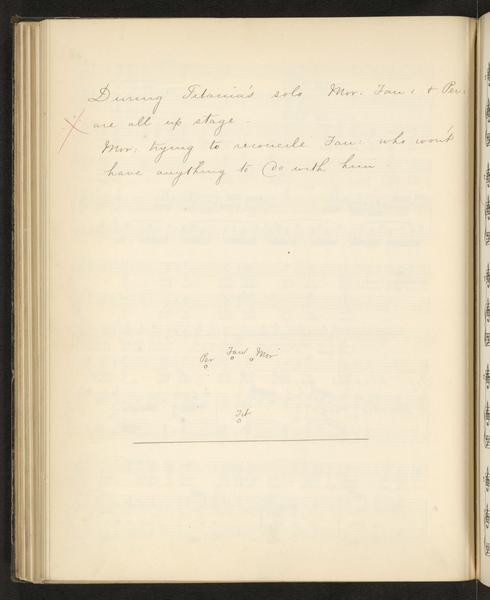 During Titania's solo Mor: Fau: & Per:
are all up stage -
Mor: trying to reconcile Fau: who won't
have anything to do with him -
Per Fau Mor
Tit